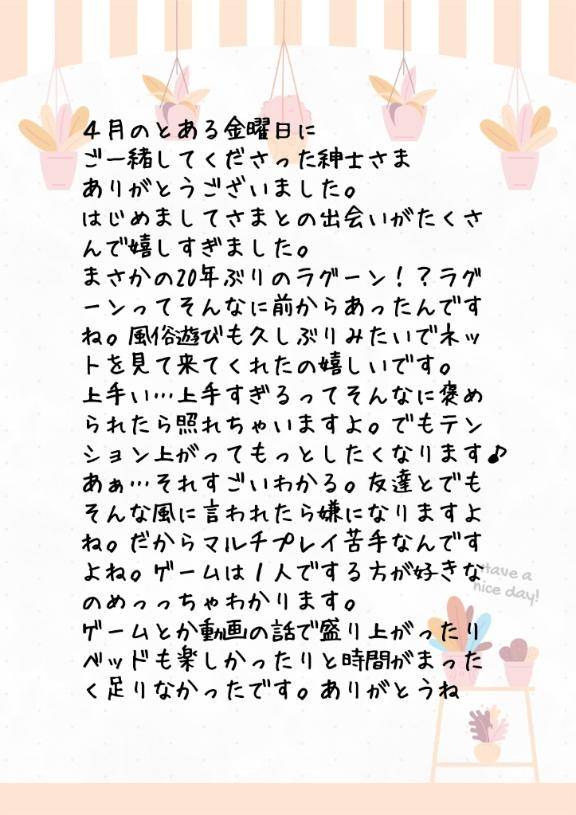 ４月のとある金曜日に
ご一緒してくださった紳士さま
ありがとうございました。
はじめましてさまとの出会いがたくさ
んで嬉しすぎました。
まさかの20年ぶりのラグーン！？ラグ
ーンってそんなに前からあったんです
ね。風俗遊びも久しぶりみたいでネッ
トを見て来てくれたの嬉しいです。
上手い…上手すぎるってそんなに褒め
られたら照れちゃいますよ。でもテン
ション上がってもっとしたくなります♪
あぁ…それすごいわかる。友達とでも
そんな風に言われたら嫌になりますよ
ね。だからマルチプレイ苦手なんです
よね。ゲームは１人でする方が好きな
のめっっちゃわかります。
ゲームとか動画の話で盛り上がったり
ベッドも楽しかったりと時間がまった
く足りなかったです。ありがとうね
Have a
nice day!